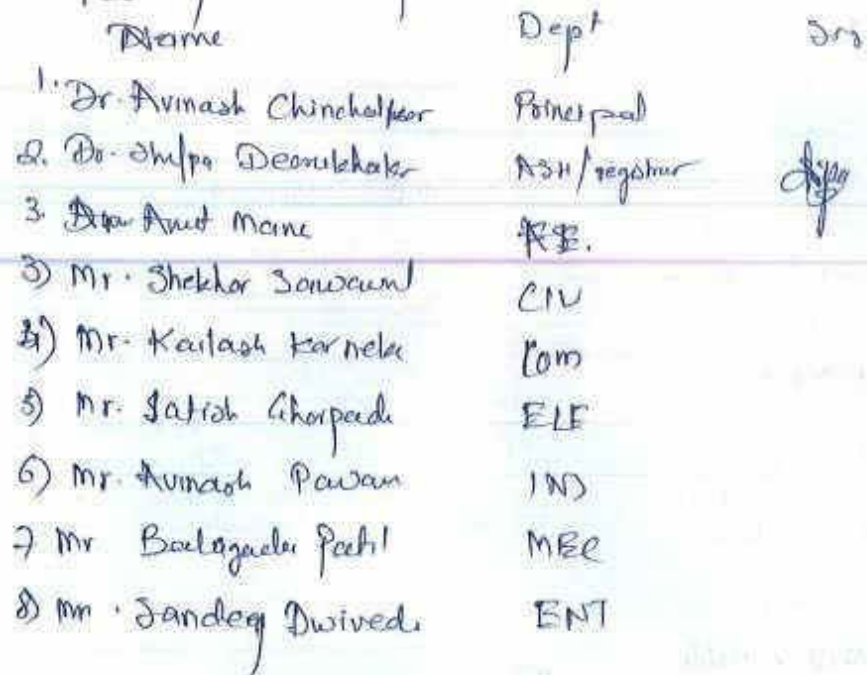 Name Dept
1. Dr. Avinash Chinchalpeor Principal
2. Dr. Shilpa Deomukhakr ASH/registrar
3. Amit Mane
3) Mr. Shekhar Sawant CIV
4) Mr. Kailash Karneka Com
5) Mr. Satish Ghorpade ELE
6) Mr. Avinash Pawan IND
7 Mr Patil MEC
8) Mr. Sandeep Dwivedi ENT